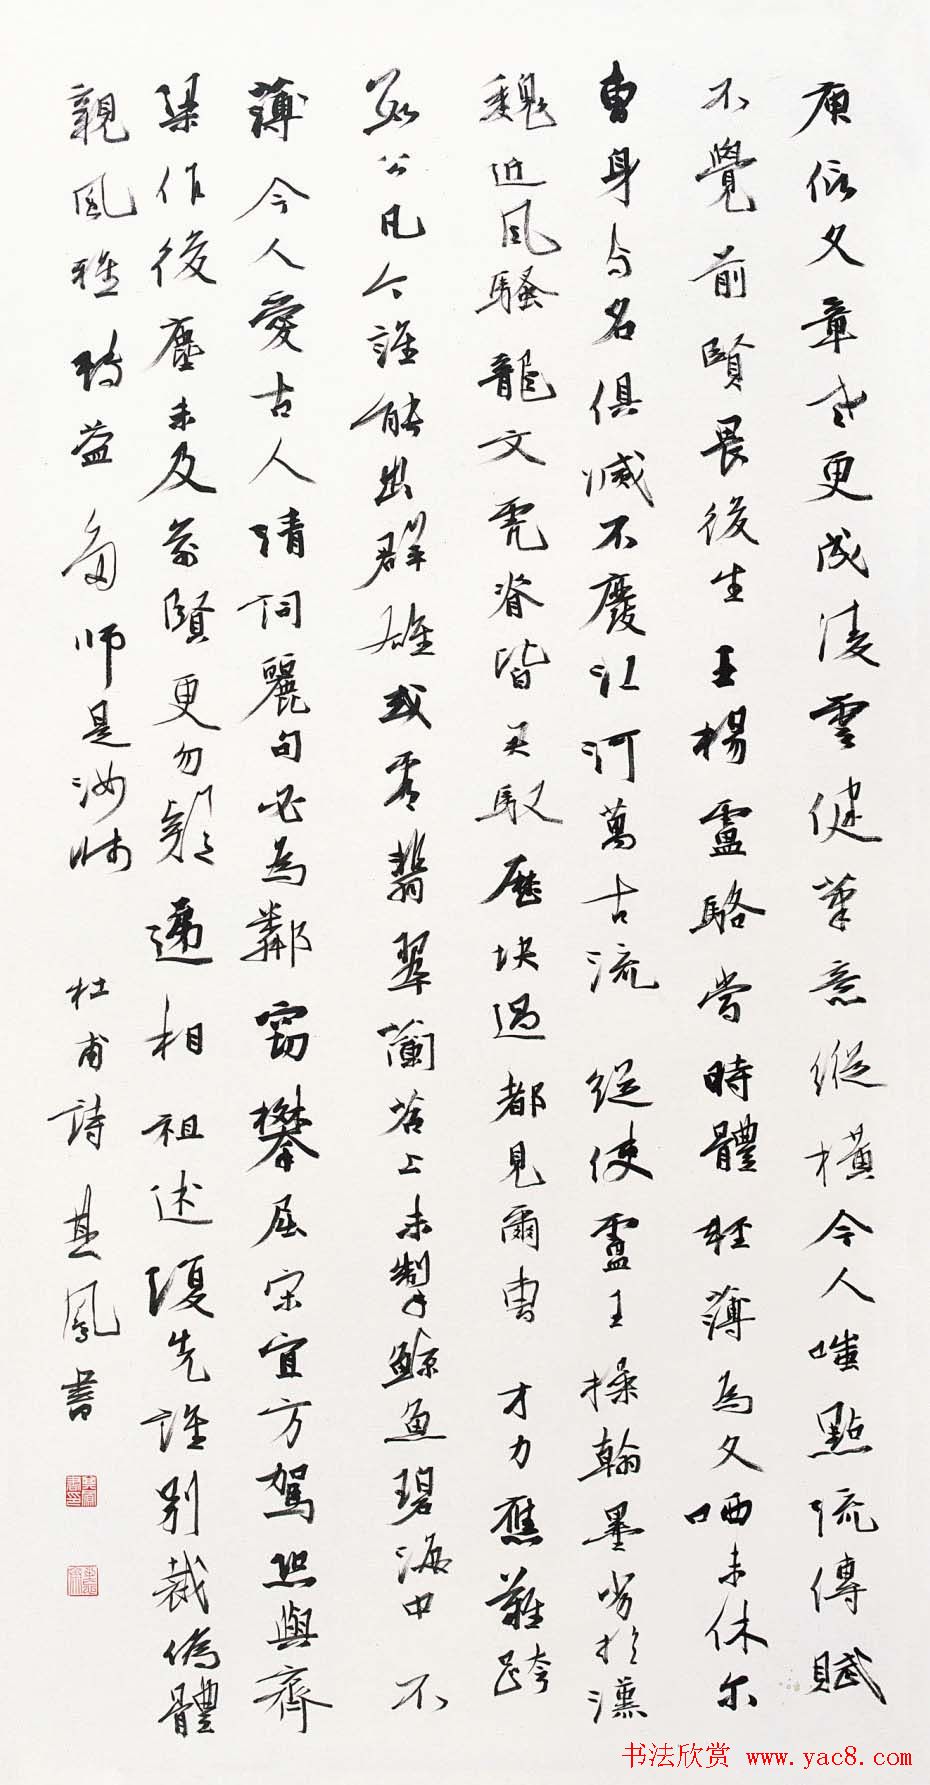 庾信文章老更成凌雲健筆意縱橫今人嗤點流傳賦
不覺前賢畏後生王楊盧駱當時體輕薄為文哂未休尔
曹身与名俱滅不廢江河萬古流 縱使盧王操翰墨劣於漢
魏近風騷龍文虎脊皆君馭歷塊過都見爾曹 才力應難跨
數公凡今誰能出群雄或看翡翠蘭苕上未掣鯨魚碧海中 不
薄今人愛古人清詞麗句必為鄰竊攀屈宋宜方駕恐與齊
梁作後塵未及前賢更勿疑遞相祖述復先誰别裁偽體
親風雅轉益多師是汝師 杜甫詩 鳳書
书法欣赏 www.yac8.com